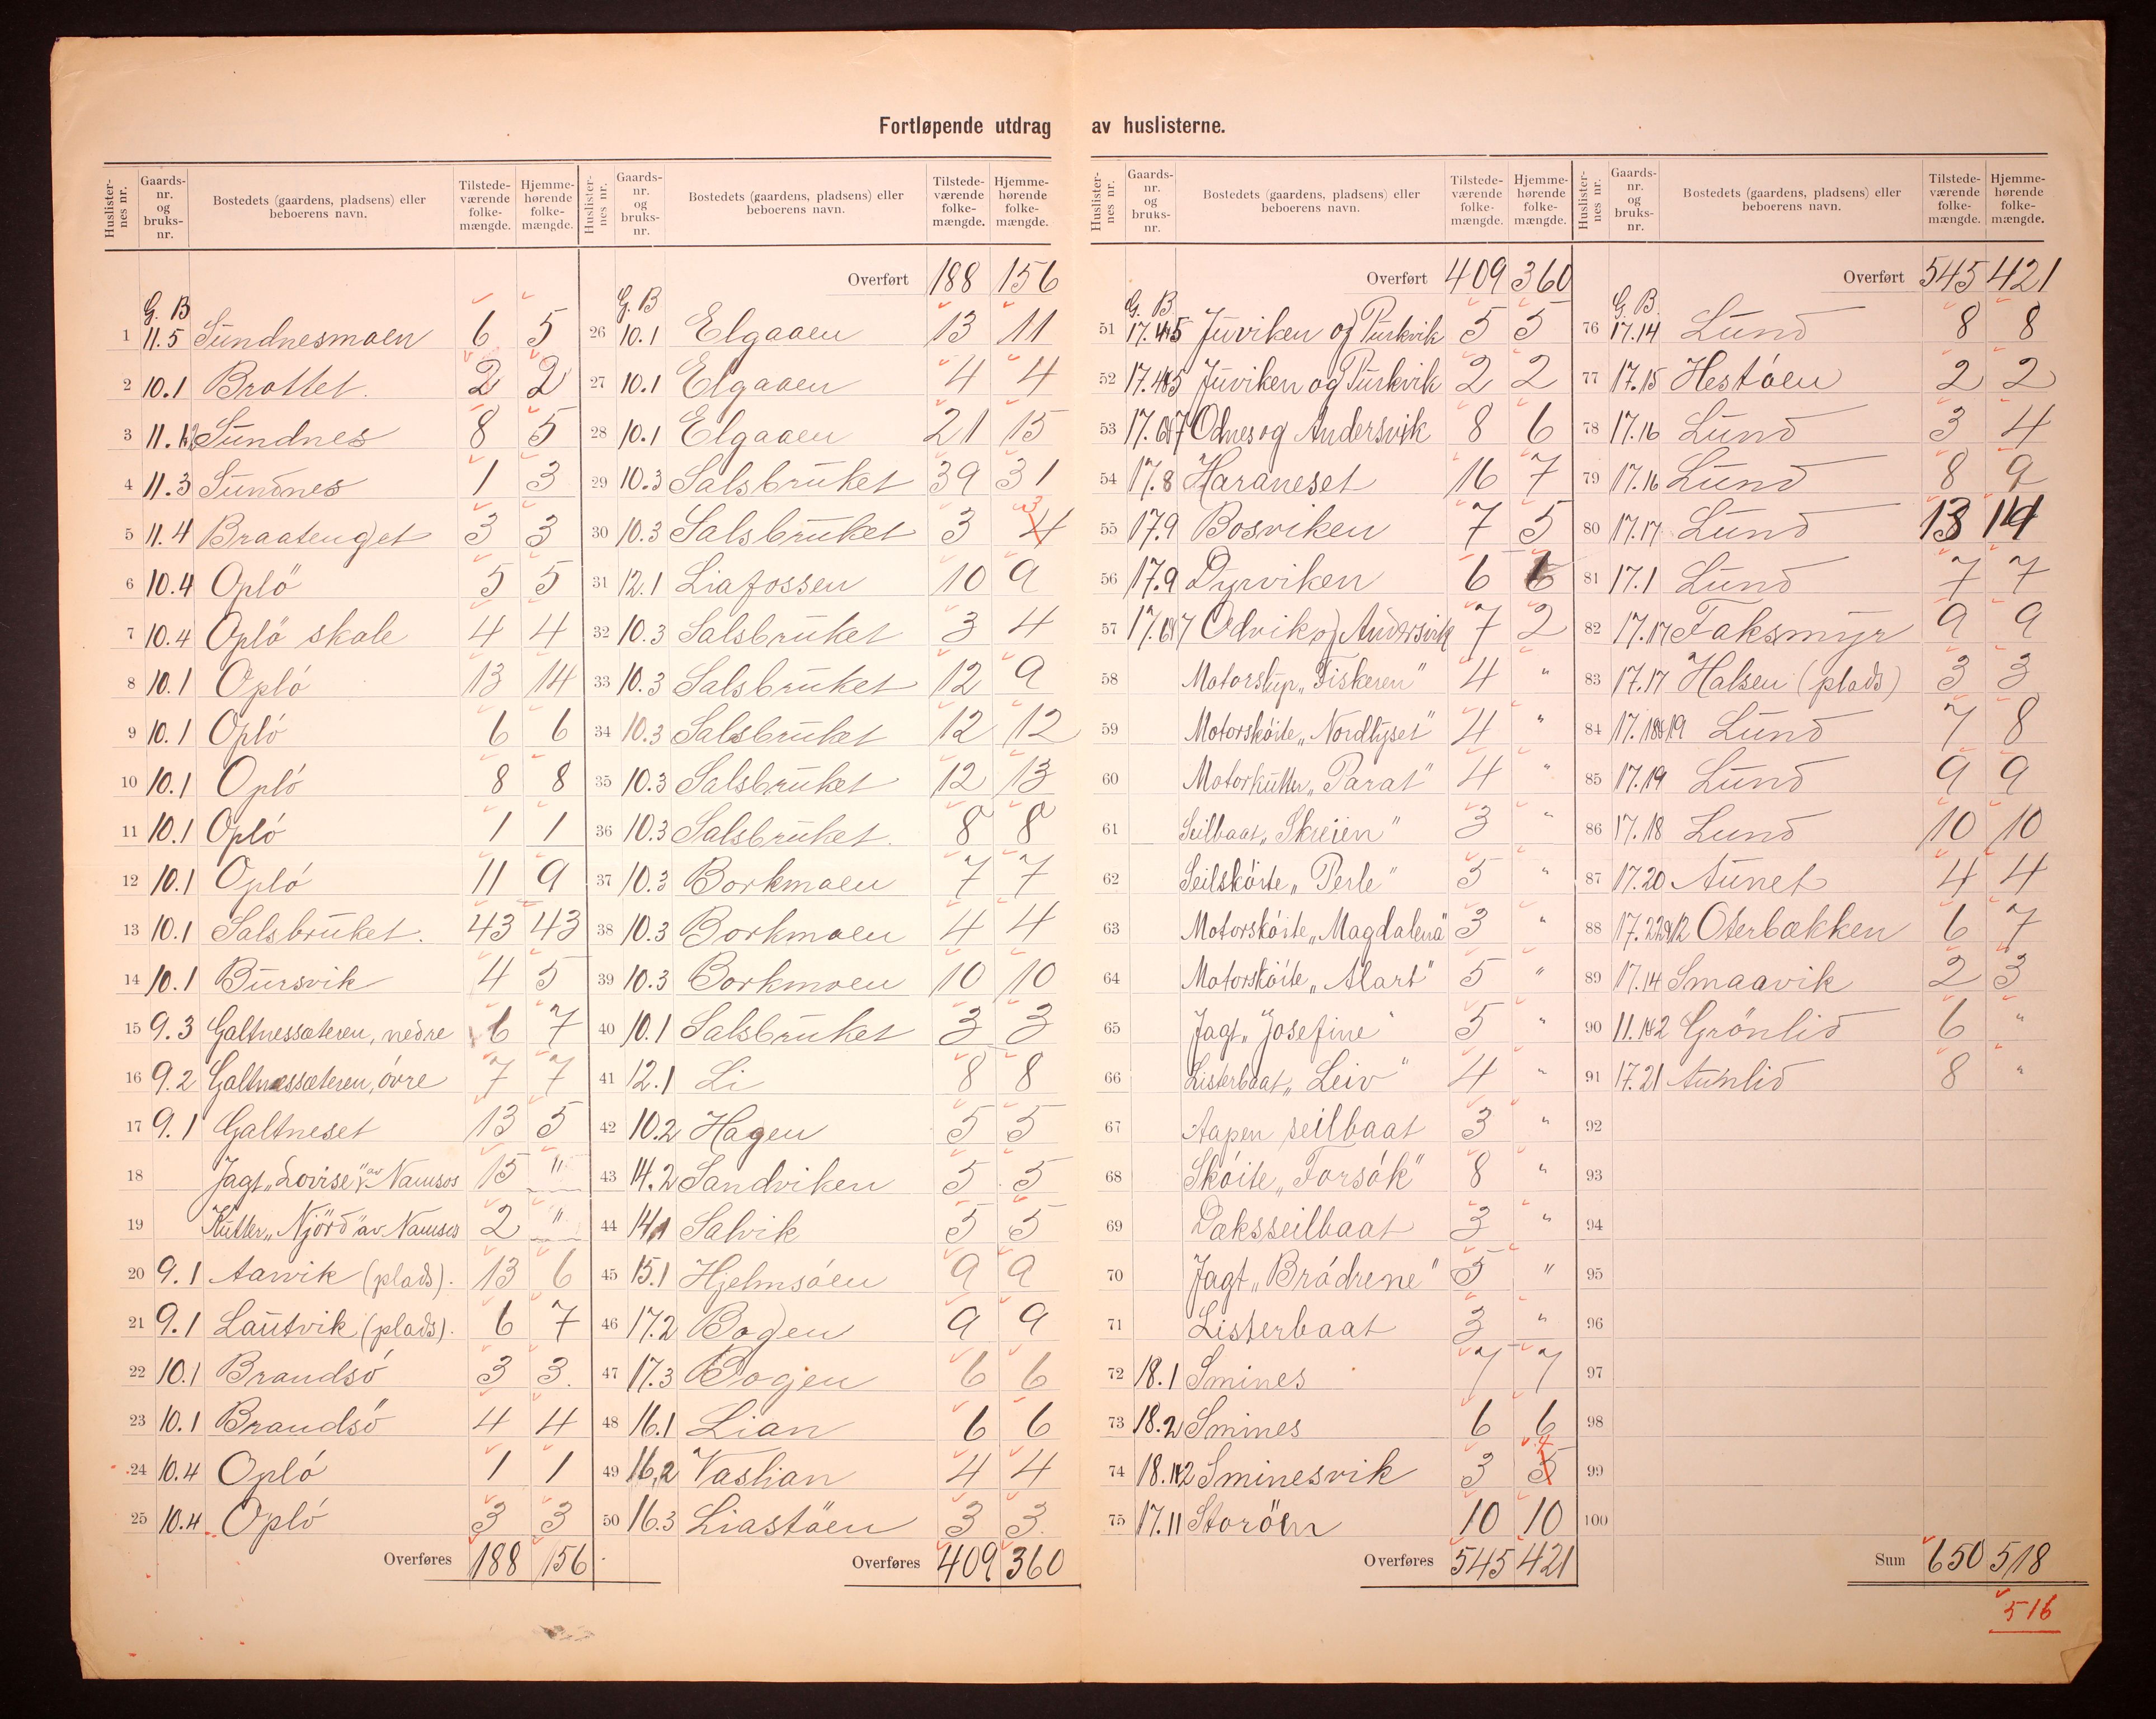 Fortløpende utdrag av huslisterne.
Huslisternes nr. Gaards-nr. og bruks-nr. Bostedets (gaardens, pladsens) eller beboerens navn. Tilstedeværende folkemængde. Hjemmehørende folkemængde.
G. B
1 11.5 Sundnesmoen 6 5
2 10.1 Brottet. 2 2
3 11.1&2 Sundnes 8 5
4 11.3 Sundnes 1 3
5 11.4 Braatenget 3 3
6 10.4 Opló 5 5
7 10.4 Opló skole 4 4
8 10.1 Opló 13 14
9 10.1 Opló 6 6
10 10.1 Opló 8 8
11 10.1 Opló 1 1
12 10.1 Opló 11 9
13 10.1 Salsbruket. 43 43
14 10.1 Bursvik 4 5
15 9.3 Galtnessæteren, nedre 6 7
16 9.2 Galtnessæteren, óvre 7 7
17 9.1 Galtneset 13 5
18 Jagt „Lovise" av Namsos 15 "
19 Kutter „Njörd" av Namsos 2 "
20 9.1 Aarvik (plads). 13 6
21 9.1 Lautvik (plads). 6 7
22 10.1 Brandsó 3 3.
23 10.1 Brandsö 4 4
24 10.4 Opló 1 1
25 10.4 Opló 3 3
Overføres 188 156
Huslisternes nr. Gaards-nr. og bruks-nr. Bostedets (gaardens, pladsens) eller beboerens navn. Tilstedeværende folkemængde. Hjemmehørende folkemængde.
Overført 188 156
G. B
26 10.1 Elgaaen 13 11
27 10.1 Elgaaen 4 4
28 10.1 Elgaaen 21 15
29 10.3 Salsbruket 39 31
30 10.3 Salsbruket 3 4 3
31 12.1 Liafossen 10 9
32 10.3 Salsbruket 3 4
33 10.3 Salsbruket 12 9
34 10.3 Salsbruket 12 12
35 10.3 Salsbruket 12 13
36 10.3 Salsbruket. 8 8
37 10.3 Borkmoen 7 7
38 10.3 Borkmoen 4 4
39 10.3 Borkmoen 10 10
40 10.1 Salsbruket 3 3
41 12.1 Li 8 8
42 10.2 Hagen 5 5
43 14.2 Sandviken 5 5
44 14.1 Salvik 5 5
45 15.1 Hjelmsóen 9 9
46 17.2 Bogen 9 9
47 17.3 Bogen 6 6
48 16.1 Lian 6 6
49 16.2 Vaslian 4 4
50 16.3 Liastöen 3 3.
Overføres 409 360
Huslisternes nr. Gaards-nr. og bruks-nr. Bostedets (gaardens, pladsens) eller beboerens navn. Tilstedeværende folkemængde. Hjemmehørende folkemængde.
Overført 409 360
G. B.
51 17.4&5 Juviken og Purkvik 5 5
52 17.4&5 Juviken og Purkvik 2 2
53 17.6&7 Odnes og Andersvik 8 6
54 17.8 Haraneset 16 7
55 17.9 Bosviken 7 5
56 17.9 Dyrviken 6 6
57 17.6&7 Odvik og Andersvik 7 2
58 Motorslup „Fiskeren" 4 "
59 Motorskóite „Nordlyset" 4 "
60 Motorkutter „Parat" 4 "
61 Seilbaat „Skreien" 3 "
62 Seilskóite „Perle" 5 "
63 Motorskóite „Magdalena" 3 "
64 Motorskóite „Alart" 5 "
65 Jagt „Josefine" 5 "
66 Listerbaat „Leiv" 4 "
67 Aapen seilbaat 3 "
68 Skóite „Forsók" 8 "
69 Daksseilbaat 3 "
70 Jagt „Bródrene" 5 "
71 Listerbaat 3 "
72 18.1 Smines 7 7
73 18.2 Smines 6 6
74 18.1&2 Sminesvik 3 5 4
75 17.11 Storöen 10 10
Overføres 545 421
Huslisternes nr. Gaards-nr. og bruks-nr. Bostedets (gaardens, pladsens) eller beboerens navn. Tilstedeværende folkemængde. Hjemmehørende folkemængde.
Overført 545 421
G. B.
76 17.14 Lund 8 8
77 17.15 Hestóen 2 2
78 17.16 Lund 3 4
79 17.16 Lund 8 9
80 17.17 Lund 13 14
81 17.1 Lund 7 7
82 17.17 Faksmyr 9 9
83 17.17 Halsen (plads) 3 3
84 17.18&19 Lund 7 8
85 17.19 Lund 9 9
86 17.18 Lund 10 10
87 17.20 Aunet 4 4
88 Oterbækken 6 7
89 17.14 Smaavik 2 3
90 11.1&2 Grönlid 6 "
91 17.21 Aunlid 8 "
92
93
94
95
96
97
98
99
100
Sum 650 518
516